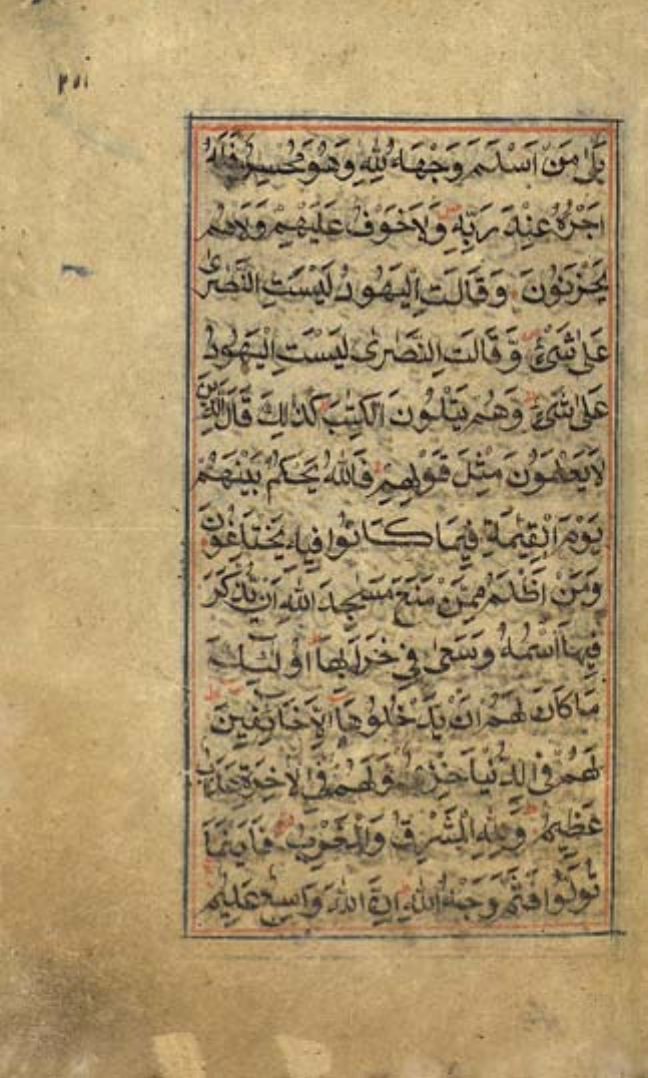 بَلٰى مَنْ اَسْلَمَ وَجْهَهُ لِلّٰهِ وَهُوَ مُحْسِنٌ فَلَهُ
اَجْرُهُ عِنْدَ رَبِّهٖ وَلَا خَوْفٌ عَلَيْهِمْ وَلَا هُمْ
يَحْزَنُونَ وَقَالَتِ الْيَهُودُ لَيْسَتِ النَّصٰرٰى
عَلٰى شَيْءٍ وَّقَالَتِ النَّصٰرٰى لَيْسَتِ الْيَهُودُ
عَلٰى شَيْءٍ وَّهُمْ يَتْلُونَ الْكِتٰبَ كَذٰلِكَ قَالَ الَّذِينَ
لَا يَعْلَمُونَ مِثْلَ قَوْلِهِمْ فَاللّٰهُ يَحْكُمُ بَيْنَهُمْ
يَوْمَ الْقِيٰمَةِ فِيمَا كَانُوا فِيهِ يَخْتَلِفُونَ
وَمَنْ اَظْلَمُ مِمَّنْ مَنَعَ مَسٰجِدَ اللّٰهِ اَنْ يُّذْكَرَ
فِيهَا اسْمُهُ وَسَعٰى فِي خَرَابِهَا اُولٰئِكَ
مَا كَانَ لَهُمْ اَنْ يَّدْخُلُوهَا اِلَّا خَائِفِينَ
لَهُمْ فِي الدُّنْيَا خِزْيٌ وَّلَهُمْ فِي الْاٰخِرَةِ عَذَابٌ
عَظِيمٌ وَلِلّٰهِ الْمَشْرِقُ وَالْمَغْرِبُ فَاَيْنَمَا
تُوَلُّوا فَثَمَّ وَجْهُ اللّٰهِ اِنَّ اللّٰهَ وَاسِعٌ عَلِيمٌ